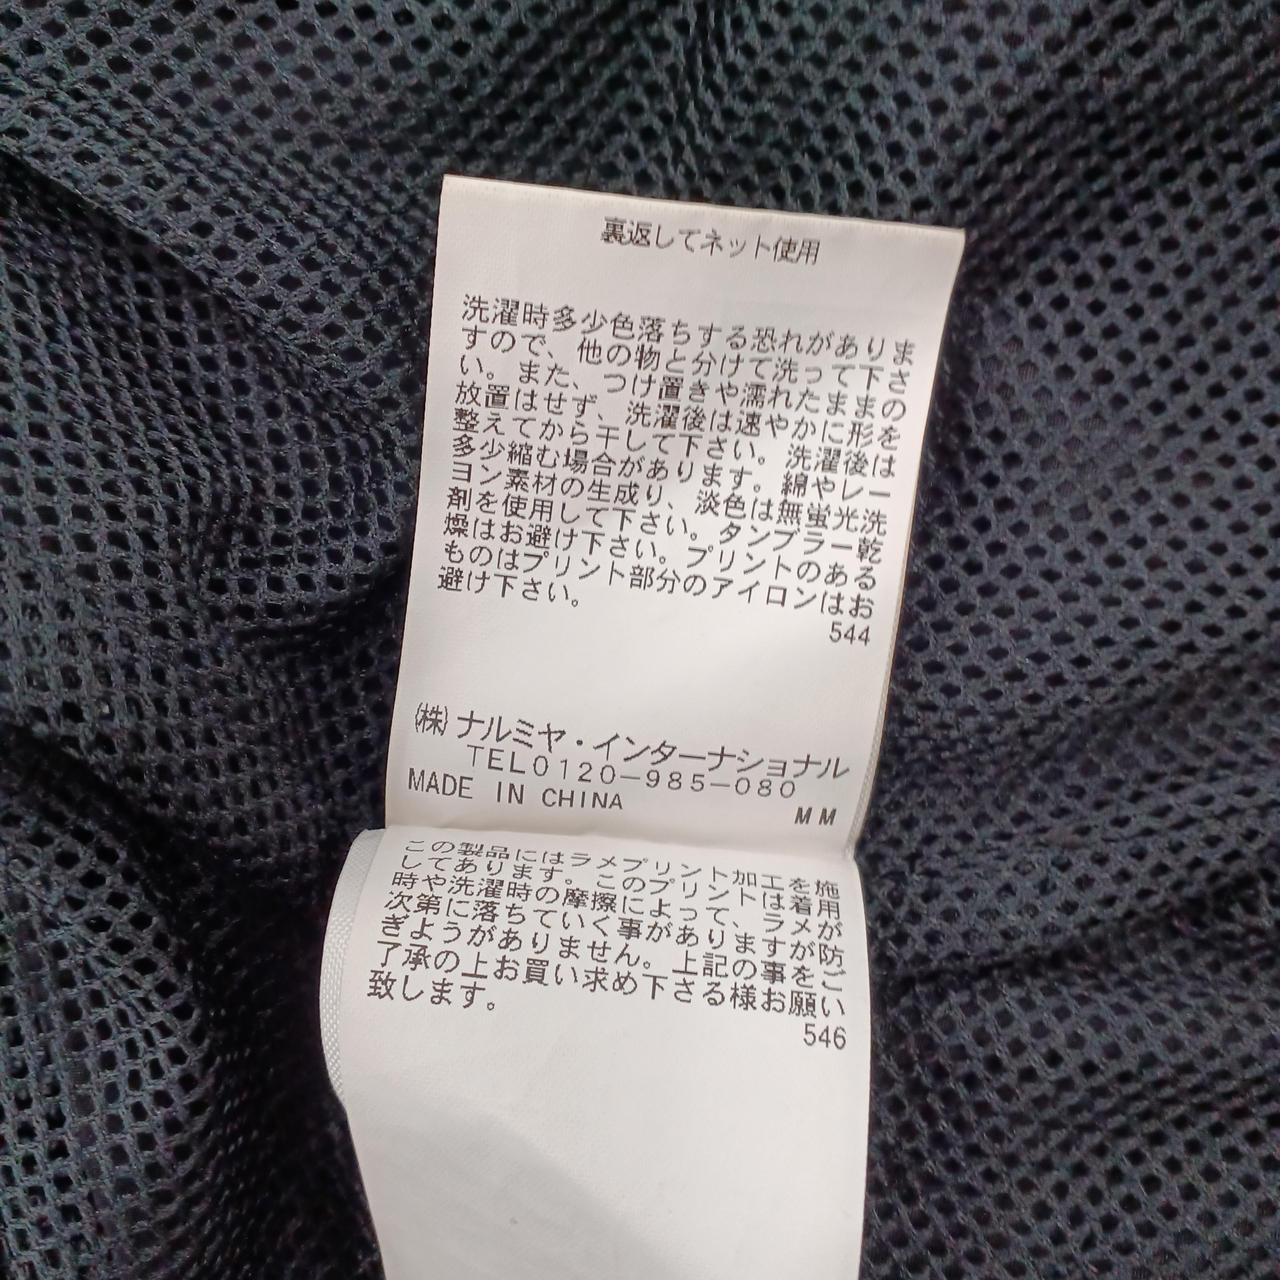 裏返してネット使用
洗濯時多少色落ちする恐れがありま
すので、他の物と分けて洗って下さ
い。また、つけ置きや濡れたままの
放置はせず、洗濯後は速やかに形を
整えてから干して下さい。洗濯後は
多少縮む場合があります。綿やレー
ヨン素材の生成り、淡色は無蛍光洗
剤を使用して下さい。タンブラー乾
燥はお避け下さい。プリントのある
ものはプリント部分のアイロンはお
避け下さい。
544
(株)ナルミヤ・インターナショナル
TEL0120-985-080
MADE IN CHINA
MM
この製品にはラメプリント加工を施
してあります。このプリントは着用
時や洗濯時の摩擦によって、ラメが
次第に落ちていく事がありますが防
ぎようがありません。上記の事をご
了承の上お買い求め下さる様お願い
致します。
546